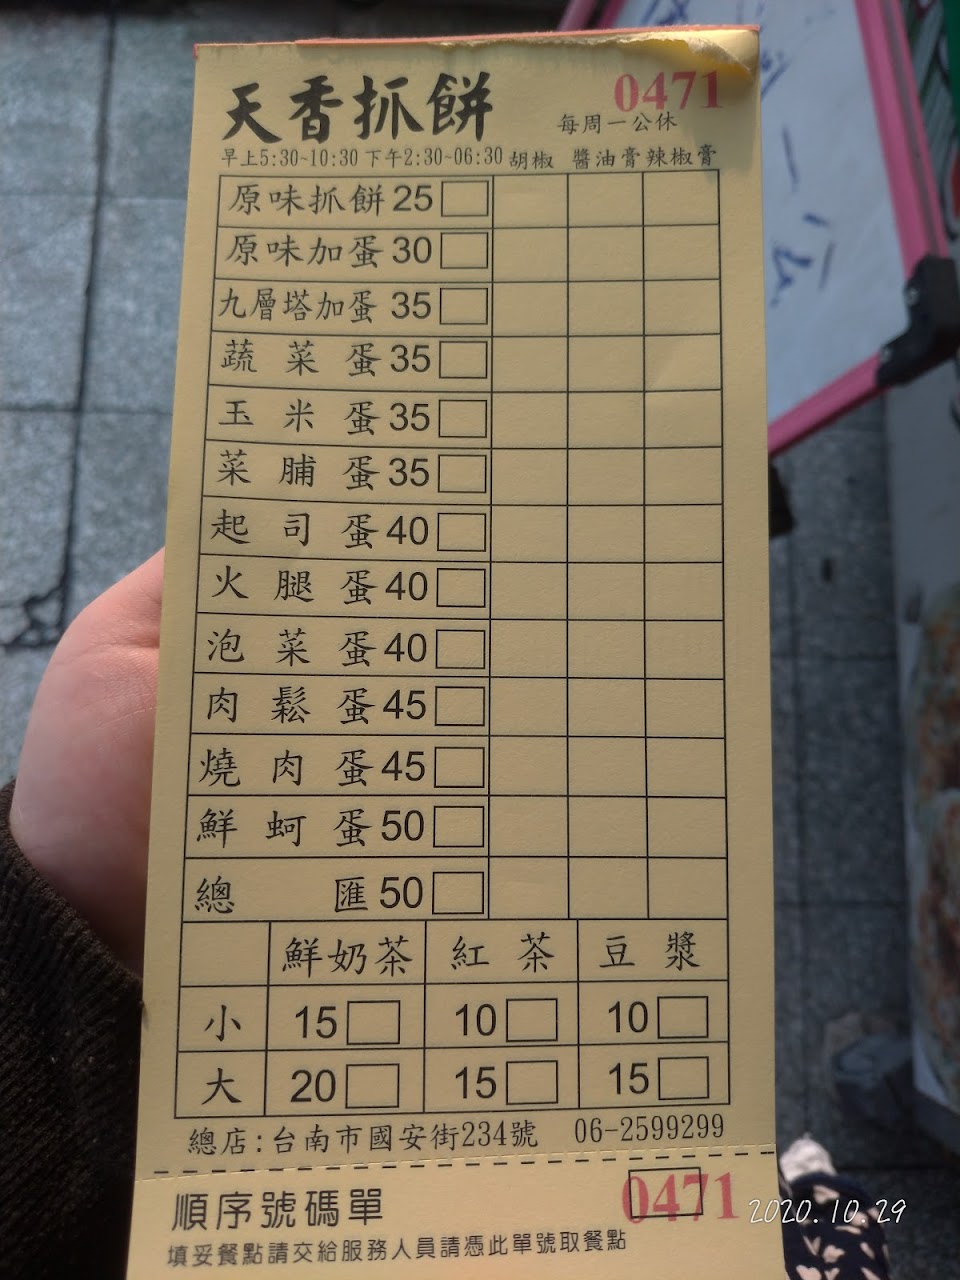 天香抓餅 0471
每周一公休
早上5:30~10:30 下午2:30~06:30 胡椒 醬油膏 辣椒膏
原味抓餅 25
原味加蛋 30
九層塔加蛋 35
蔬菜蛋 35
玉米蛋 35
菜脯蛋 35
起司蛋 40
火腿蛋 40
泡菜蛋 40
肉鬆蛋 45
燒肉蛋 45
鮮蚵蛋 50
總匯 50
鮮奶茶 紅茶 豆漿
小 15 10 10
大 20 15 15
總店:台南市國安街234號 06-2599299
順序號碼單 0471
填妥餐點請交給服務人員請憑此單號取餐點
2020.10.29